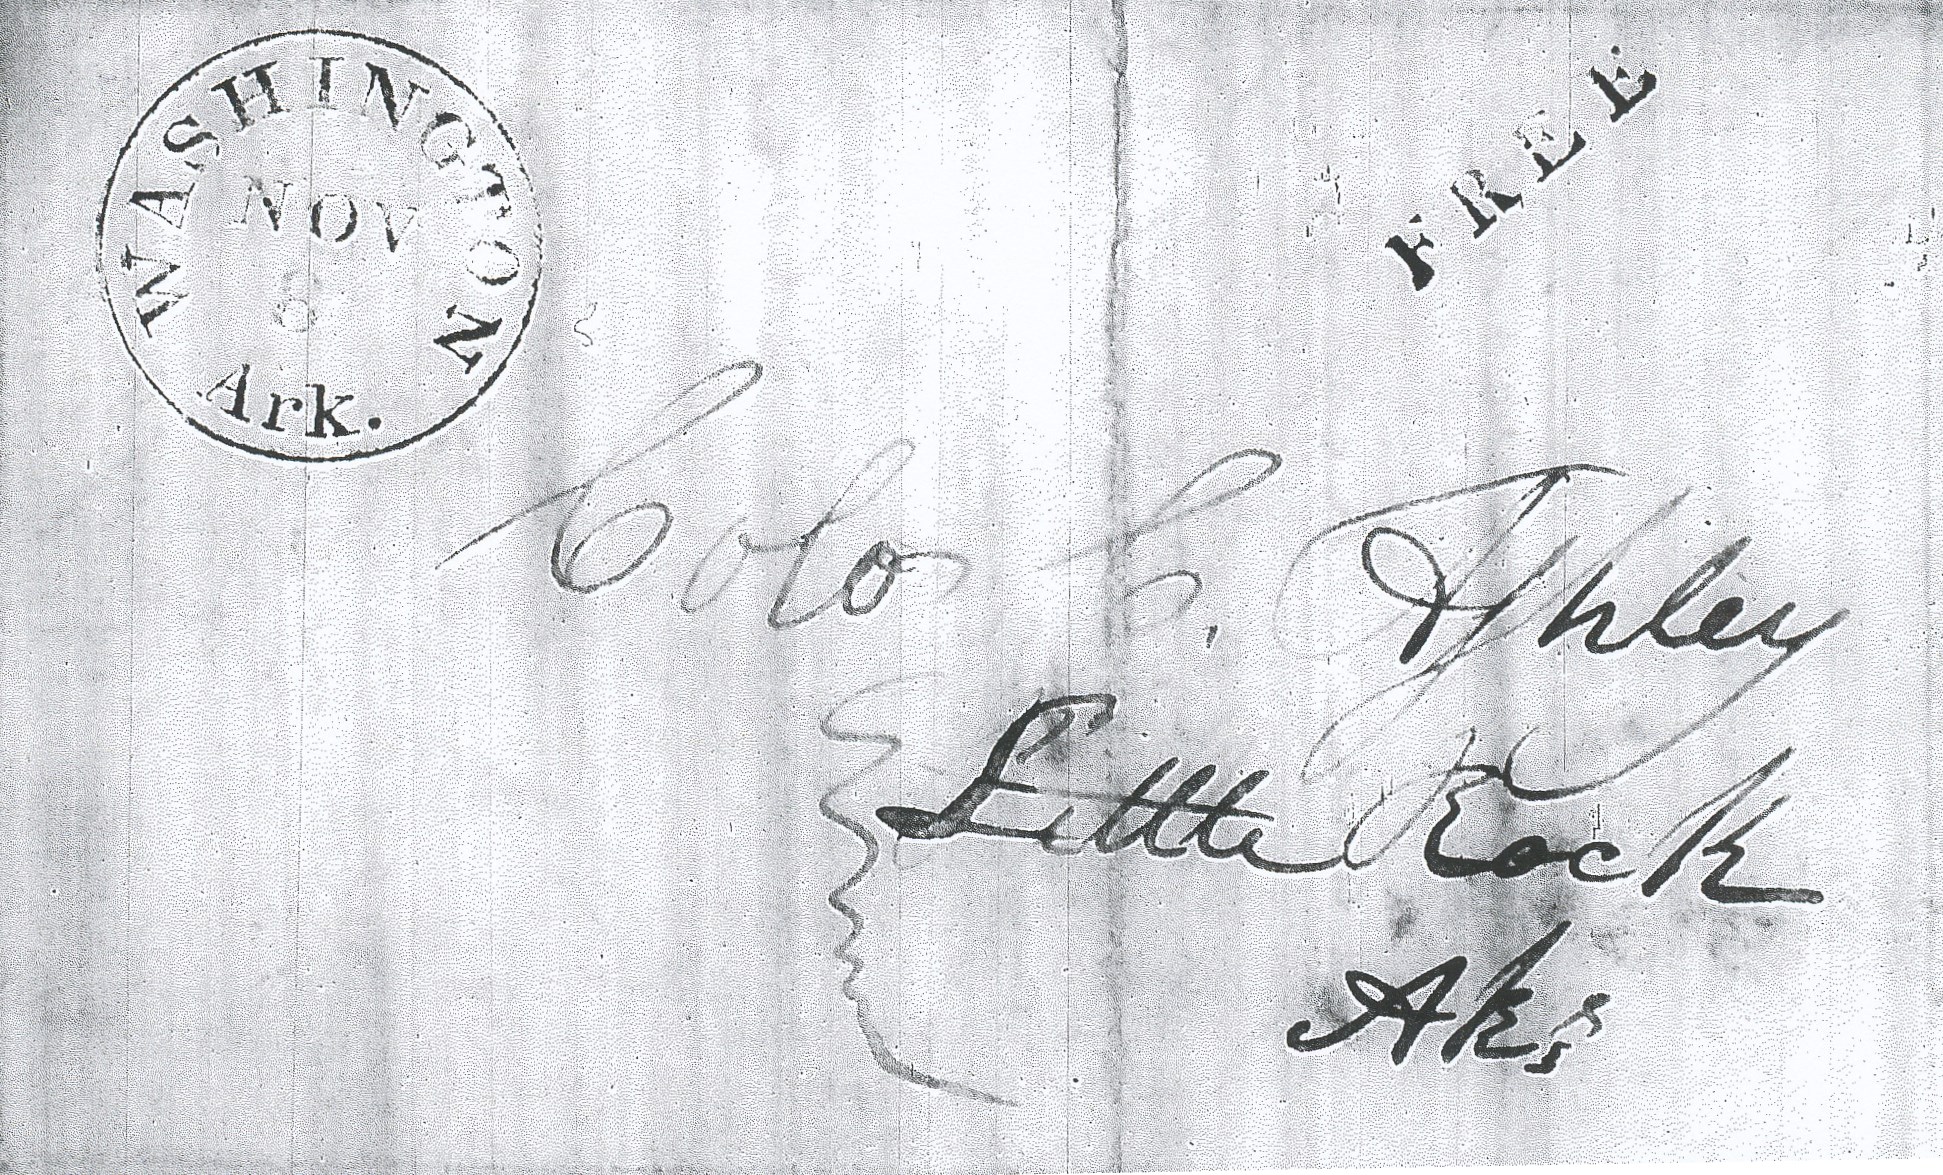 WASHINGTON
NOV
8
Ark.
FREE
Colo C. Ashley
Little Rock
Aks